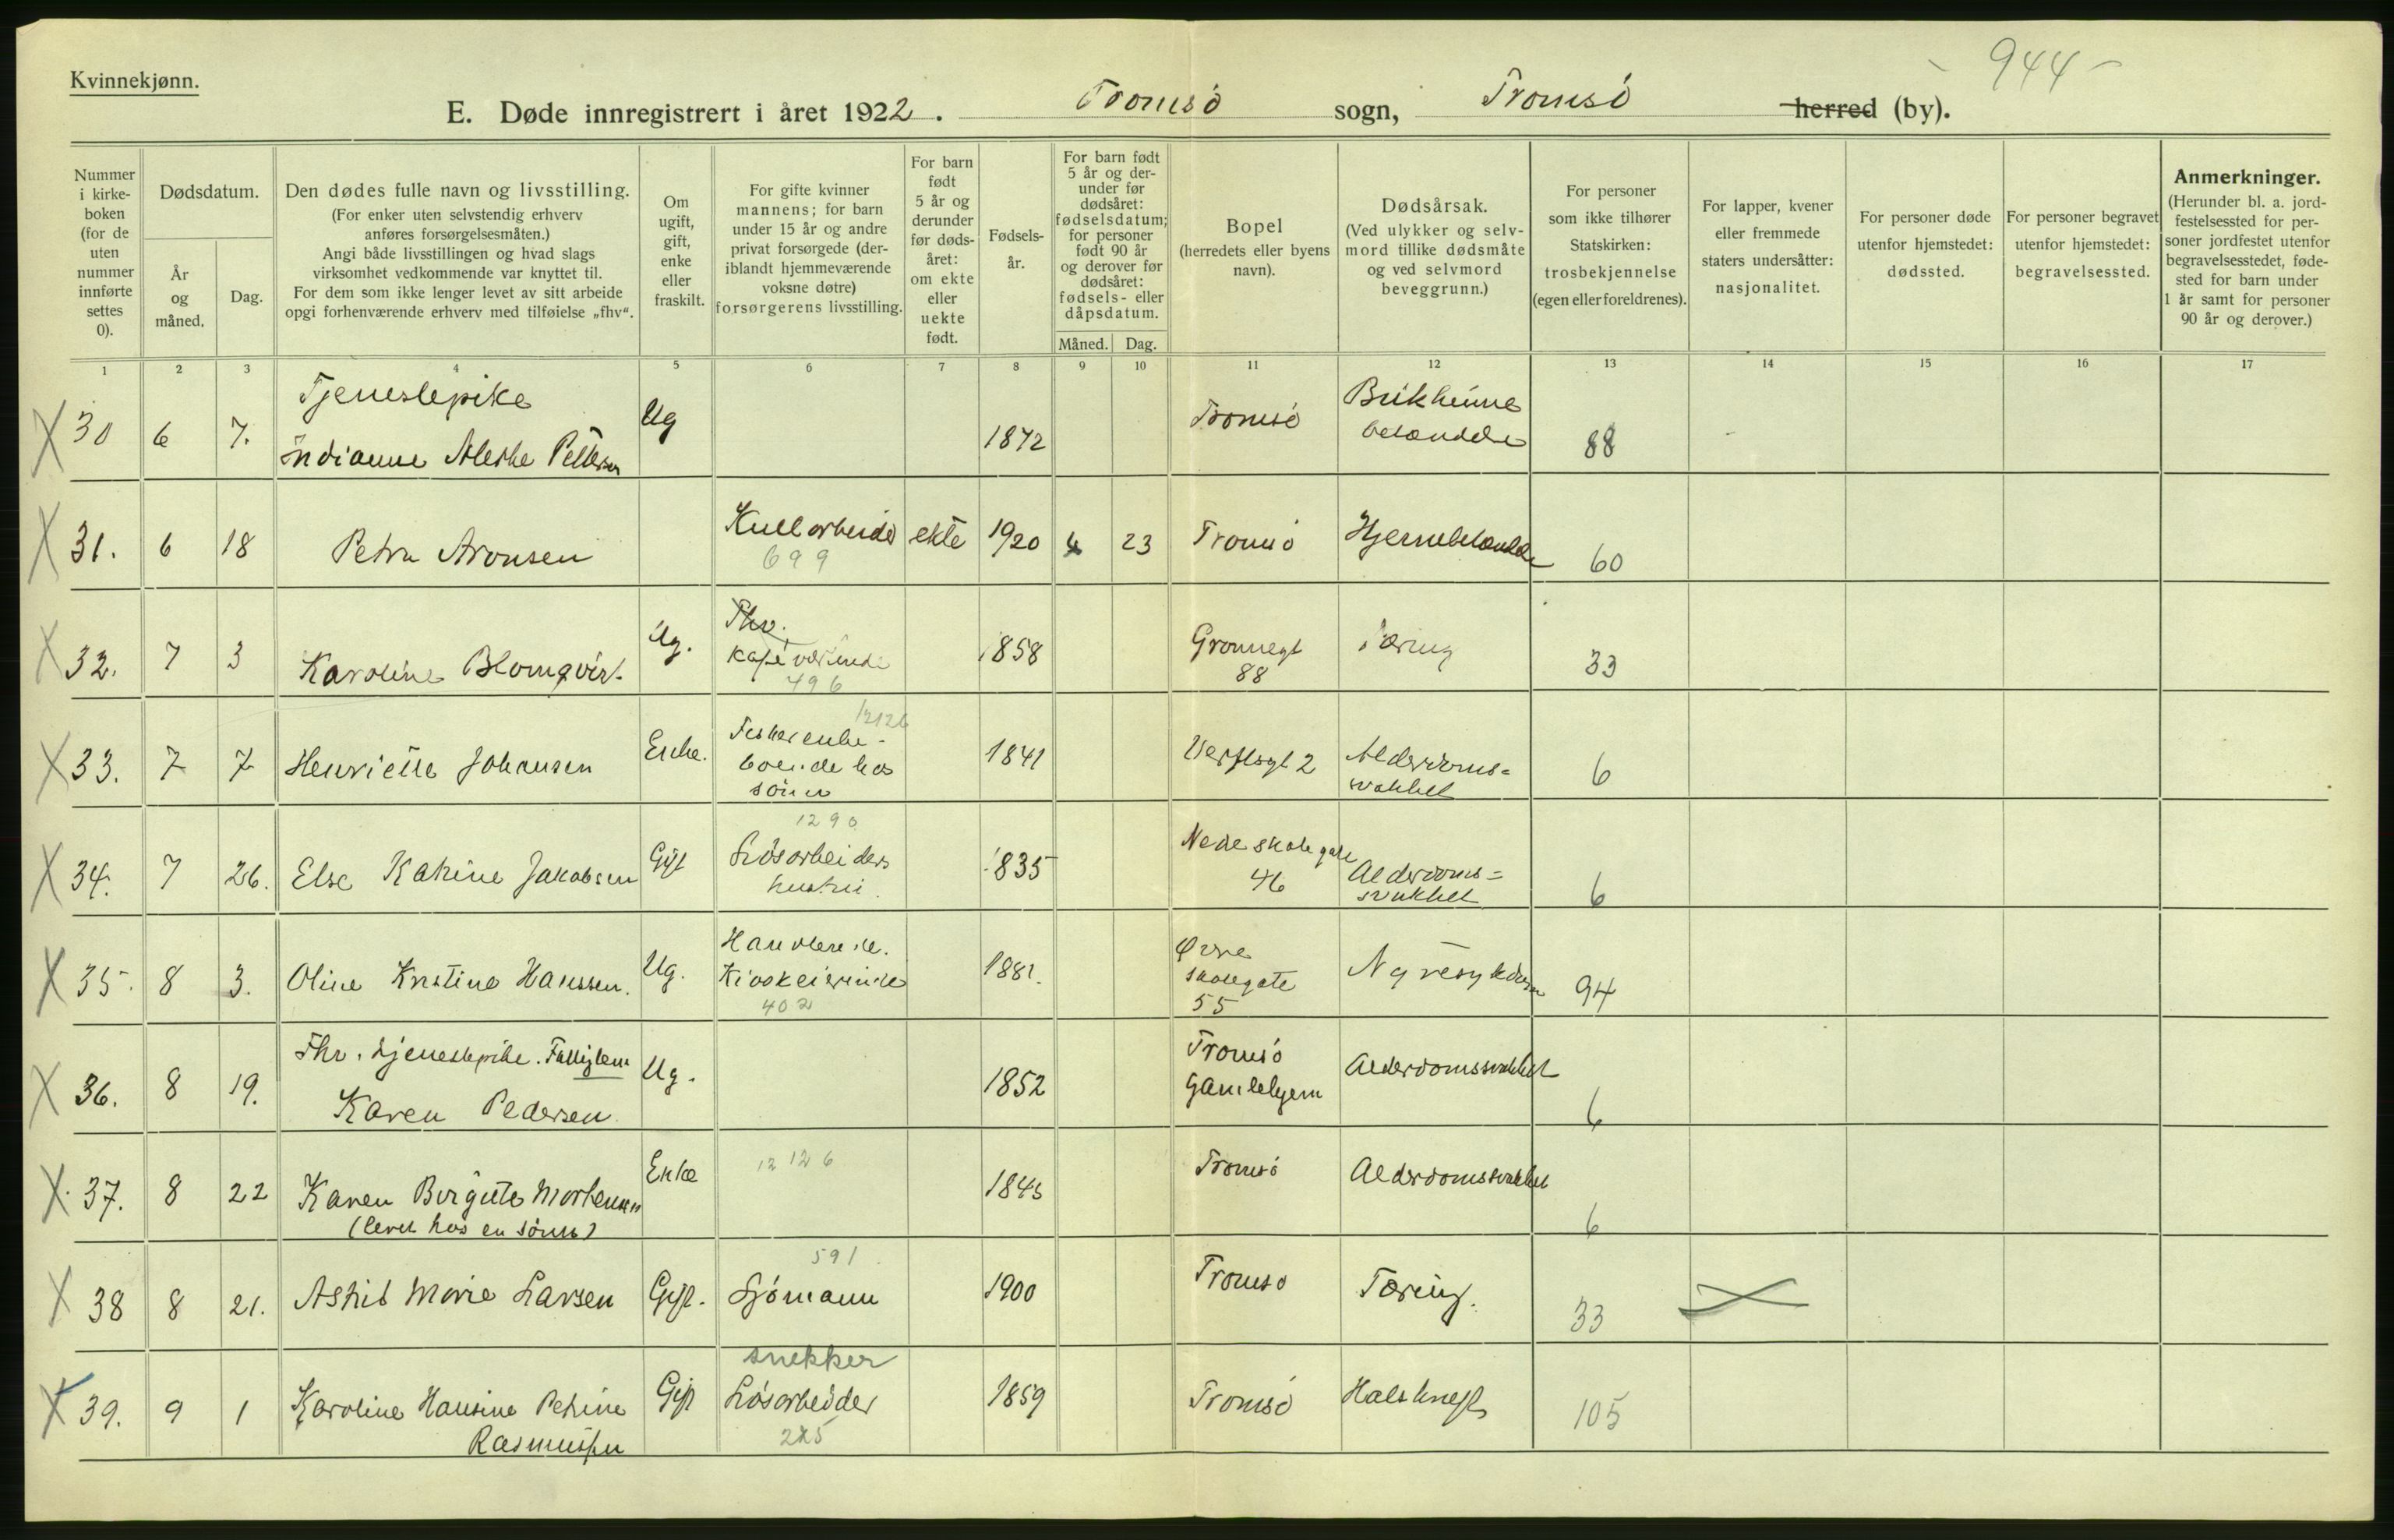 - 944 -
Kvinnekjønn.
E. Døde innregistrert i året 1922. Tromsö sogn, Tromsö herred (by).
Nummer i kirke-boken (for de uten nummer innførte settes 0).
Dødsdatum.
År og måned.
Dag.
Den dødes fulle navn og livsstilling.
(For enker uten selvstendig erhverv anføres forsørgelsesmåten.)
Angi både livsstillingen og hvad slags virksomhet vedkommende var knyttet til.
For dem som ikke lenger levet av sitt arbeide opgi forhenværende erhverv med tilføielse „fhv“.
Om ugift, gift, enke eller fraskilt.
For gifte kvinner mannens; for barn under 15 år og andre privat forsørgede (deriblandt hjemmeværende voksne døtre) forsørgerens livsstilling.
For barn født 5 år og derunder før dødsåret: om ekte eller uekte født.
Fødsels-år.
For barn født 5 år og derunder før dødsåret: fødselsdatum; for personer født 90 år og derover før dødsåret: fødsels- eller dåpsdatum.
Måned. Dag.
Bopel (herredets eller byens navn).
Dødsårsak.
(Ved ulykker og selvmord tillike dødsmåte og ved selvmord beveggrunn.)
For personer som ikke tilhører Statskirken: trosbekjennelse (egen eller foreldrenes).
For lapper, kvener eller fremmede staters undersåtter: nasjonalitet.
For personer døde utenfor hjemstedet: dødssted.
For personer begravet utenfor hjemstedet: begravelsessted.
Anmerkninger.
(Herunder bl. a. jordfestelsessted for personer jordfestet utenfor begravelsesstedet, fødested for barn under 1 år samt for personer 90 år og derover.)
1 2 3 4 5 6 7 8 9 10 11 12 13 14 15 16 17
X 30 6 7. Tjenestepike Indianne Aletke Pettersen Ug 1872 Tromsö Bukhinne betændelse 88
X 31. 6 18 Petra Aronsen Kullarbeider 699 ekte 1920 4 23 Tromsö Hjernebetændelse 60
X 32. 7 3 Karoline Blomqvist Ug. Fhv. kafeværtinde 496 1858 Grønnegt 88 Tæring 33
X 33. 7 7 Henriette Johansen Enke. 12126 Fiskerenke - boende hos sönn 1841 Verftsgt 2 Alderdoms= svakhet 6
X 34. 7 26. Else Katrine Jakobsen Gift 1290 Lösarbeiders hustru. 1835 Nedre skolegate 46 Alderdoms= svakhet 6
X 35. 8 3. Oline Kristine Hanssen. Ug. Handlende. Kioskeierinde 402 1881. Øvre skolegate 55 Nyresykdom 94
X 36. 8 19. Fhv. tjenestepike. Fattiglem Karen Pedersen. Ug. 1852 Tromsö Gamlehjem Alderdomssvakhet 6
X 37. 8 22 Karen Birgitte Mortensen (levet hos en sönn) Enke 12126 1843 Tromsö Alderdomssvakhet 6
X 38 8 21. Astrid Marie Larsen Gift. 591 Sjömann 1900 Tromsö Tæring. 33
X 39. 9 1 Karoline Hansine Petrine Rasmussen Gift snekker Lösarbeider 225 1859 Tromsö Halskreft 105